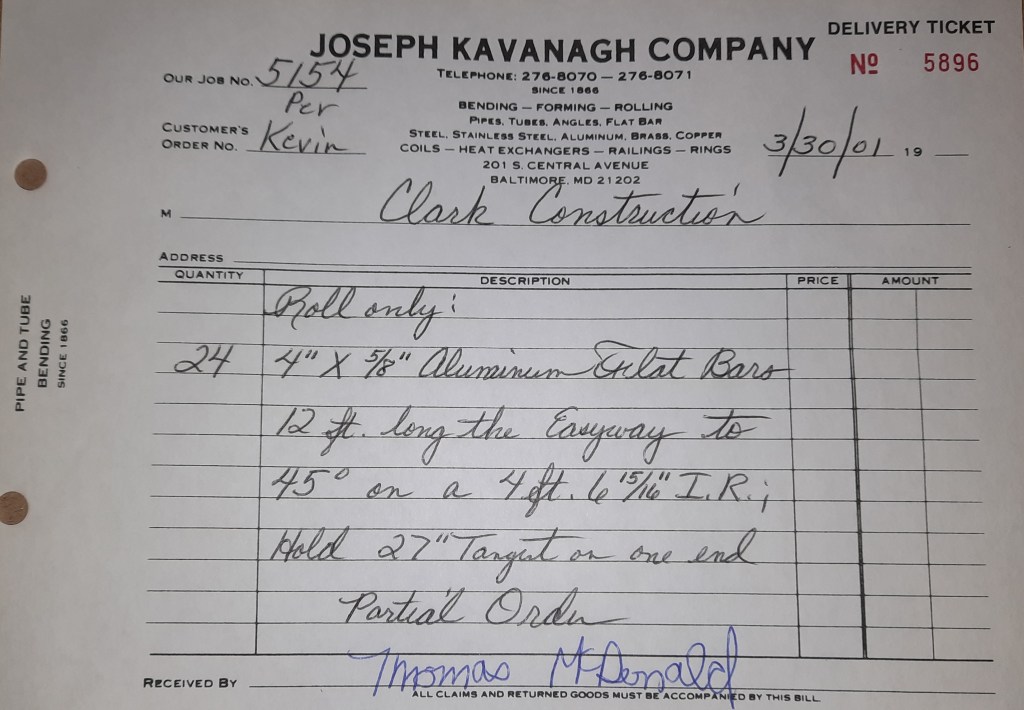 DELIVERY TICKET
JOSEPH KAVANAGH COMPANY
Nº 5896
OUR JOB NO. 5154
TELEPHONE: 276-8070 — 276-8071
SINCE 1866
Per
BENDING — FORMING — ROLLING
PIPES, TUBES, ANGLES, FLAT BAR
CUSTOMER'S
ORDER NO. Kevin
STEEL, STAINLESS STEEL, ALUMINUM, BRASS, COPPER
COILS — HEAT EXCHANGERS — RAILINGS — RINGS
3/30/01 19
201 S. CENTRAL AVENUE
BALTIMORE, MD 21202
M Clark Construction
ADDRESS
QUANTITY DESCRIPTION PRICE AMOUNT
Roll only:
24 4" X 5/8" Aluminum Flat Bars
12 ft. long the Easyway to
45° on a 4 ft. 6 15/16" I.R.;
Hold 27" Tangent on one end
Partial Order
RECEIVED BY Thomas McDonald
ALL CLAIMS AND RETURNED GOODS MUST BE ACCOMPANIED BY THIS BILL
PIPE AND TUBE
BENDING
SINCE 1866